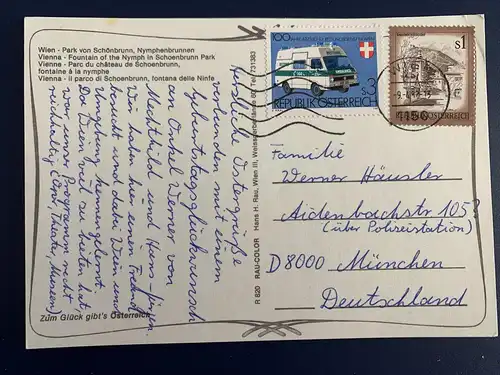 Wien - Park von Schönbrunn, Nymphenbrunnen
Vienna - Fountain of the Nymph in Schoenbrunn Park
Vienne - Parc du château de Schoenbrunn,
fontaine à la nymphe
Vienna - Il parco di Schoenbrunn, fontana delle Ninfe
Herzliche Ostergrüße
verbunden mit einem
Geburtstagsglückwunsch
an Onkel Werner von
Mechthild und Hans-Jürgen.
Wir haben hier einen Freund
besucht und dabei Wien und
Umgebung kennengelernt.
Da Wien viel zu bieten hat,
war unser Programm recht
reichhaltig (Oper, Theater, Museen)
Zum Glück gibt's Österreich
R 820 RAU-COLOR Hans H. Rau, Wien III,
REPUBLIK ÖSTERREICH
S3
S1
REPUBLIK ÖSTERREICH
1150
Familie
Werner Häusler
Aidenbachstr 105
(über Polizeistation)
D 8000 München
Deutschland